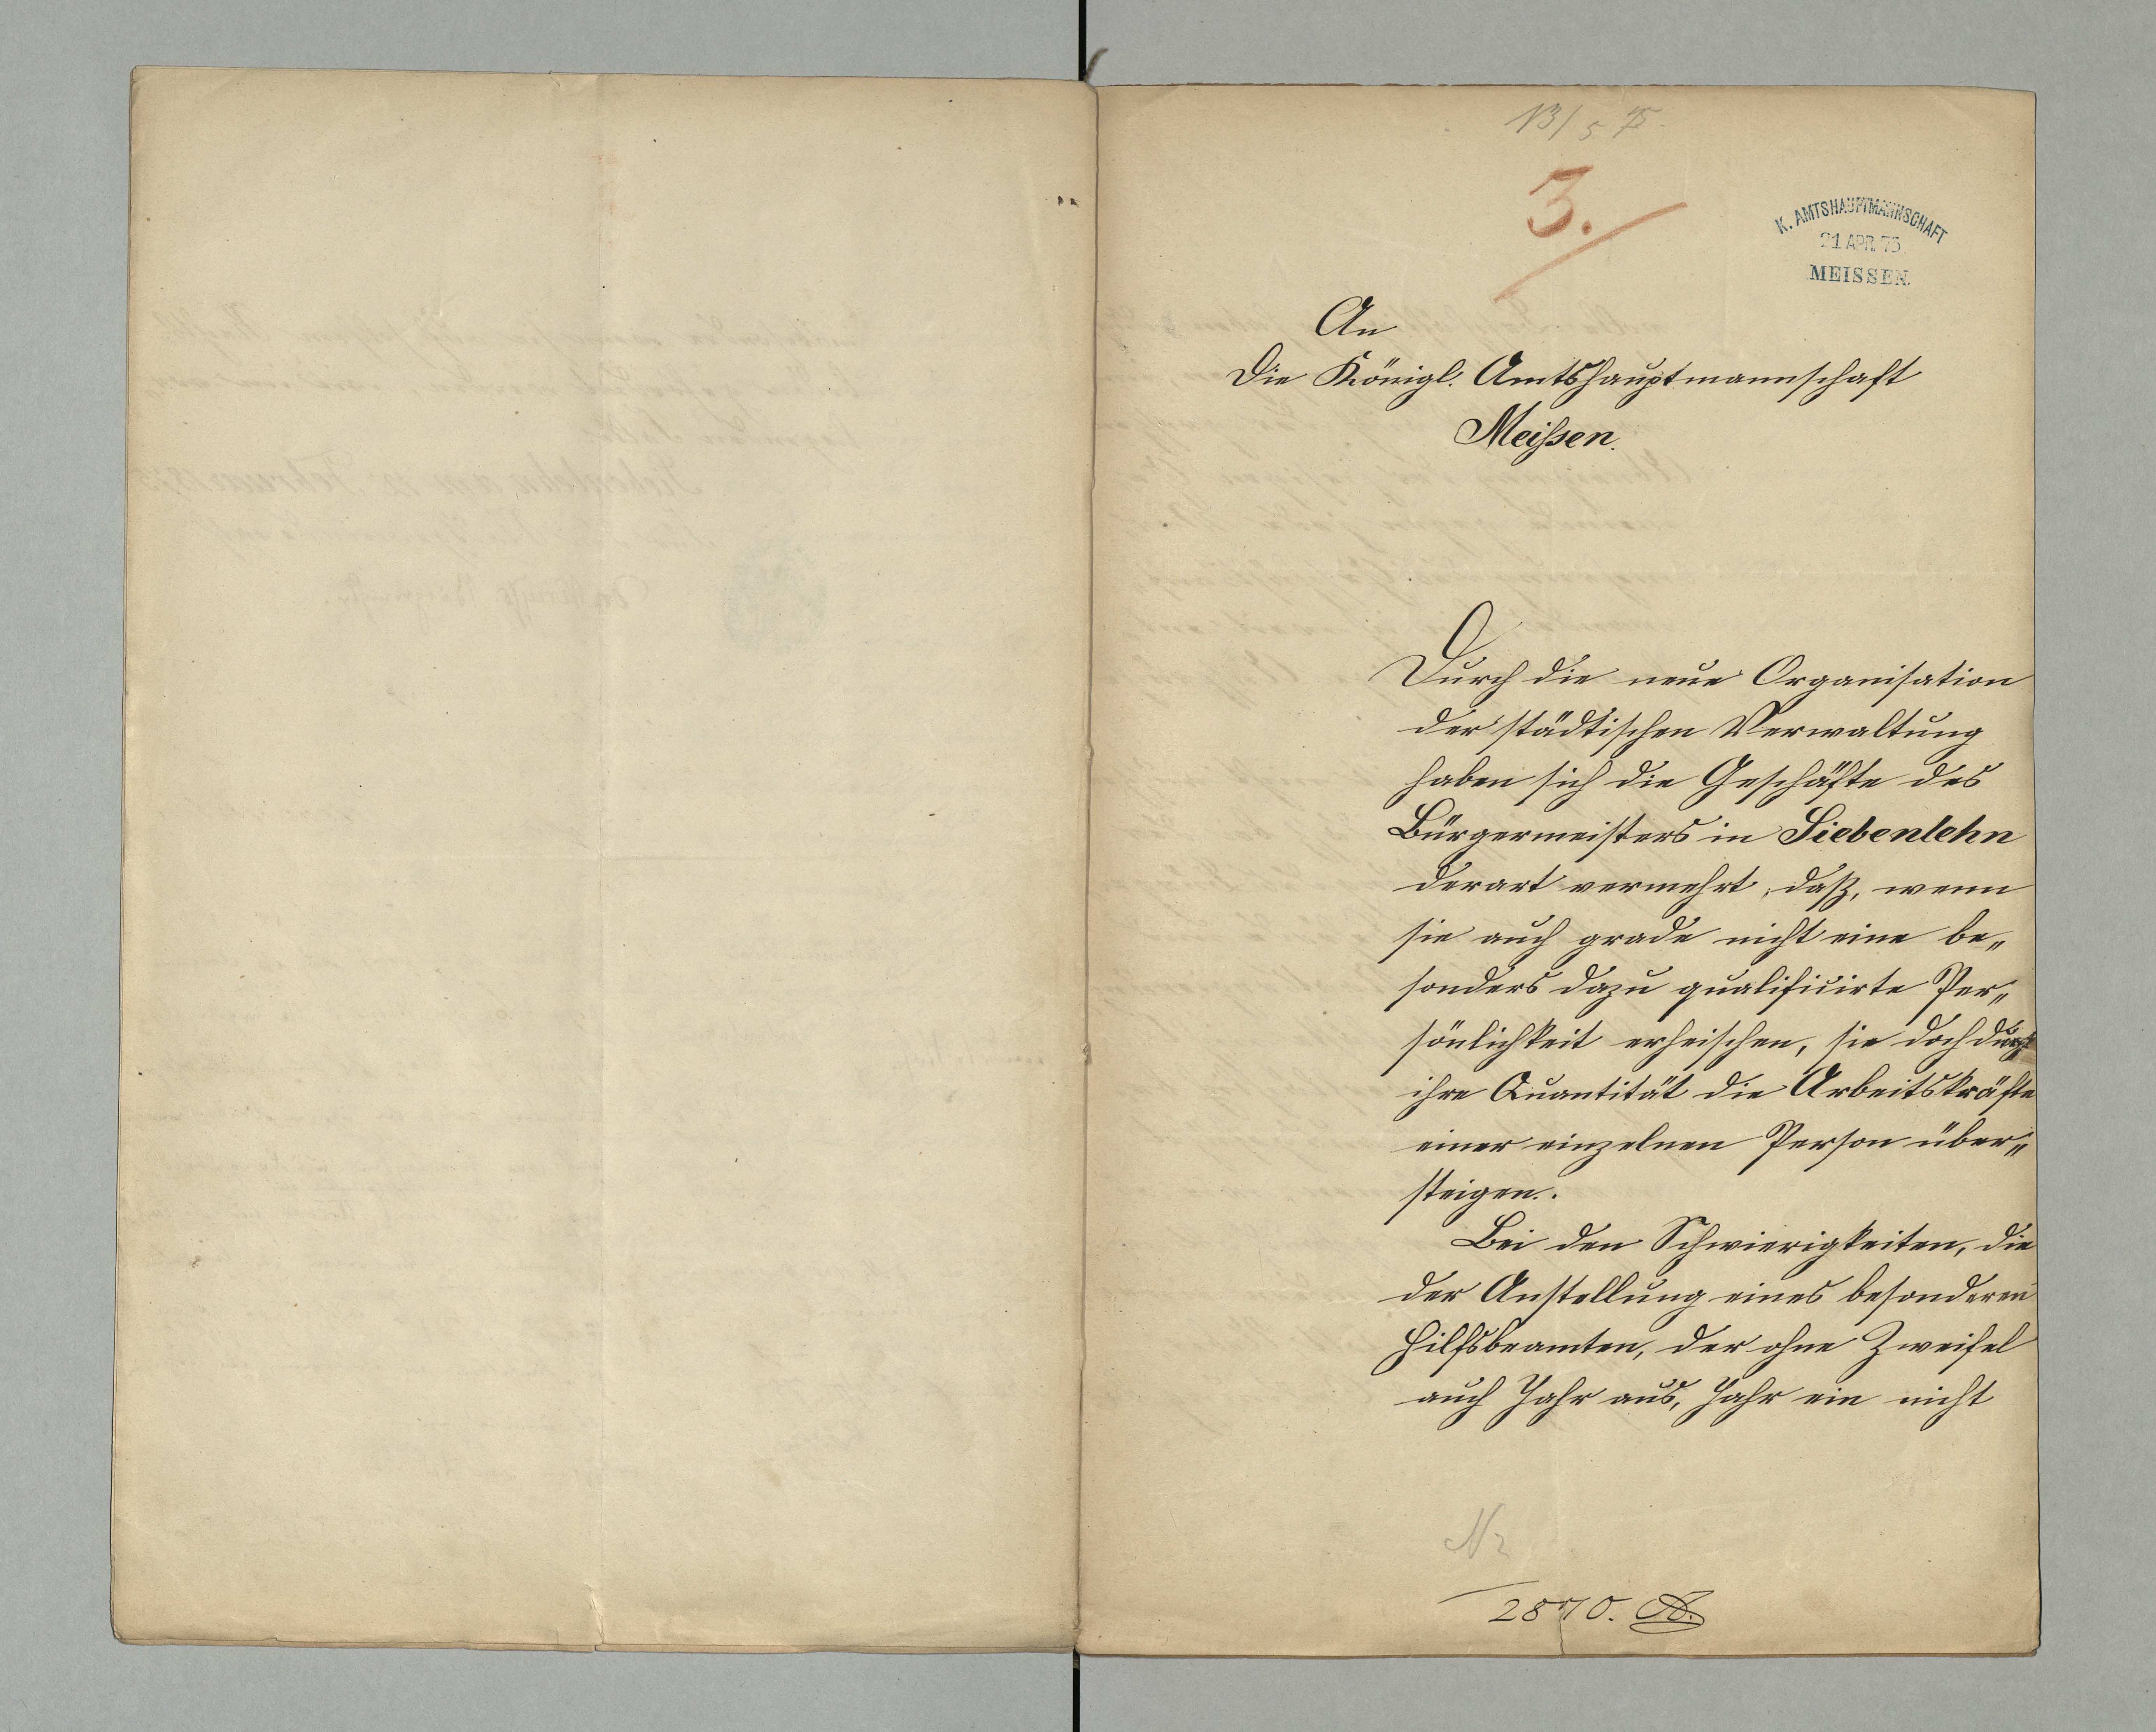 13/5 75.
3.
K. AMTSHAUPTMANNSCHAFT
21 APR. 75.
MEISSEN.
An
die Königl. Amtshauptmannschaft
Meißen.
Durch die neue Organisation
der städtischen Verwaltung
haben sich die Geschäfte des
Bürgermeisters in Siebenlehn
derart vermehrt, daß, wenn
sie auch grade nicht eine be„
sonders dazu qualificirte Per„
sönlichkeit erheischen, sie doch durch
ihre Quantität die Arbeitskräfte
einer einzelnen Person über„
steigen.
Bei den Schwierigkeiten, die
der Anstellung eines besonderen
Hilfsbeamten, der ohne Zweifel
auch Jahr aus, Jahr ein nicht
2870.